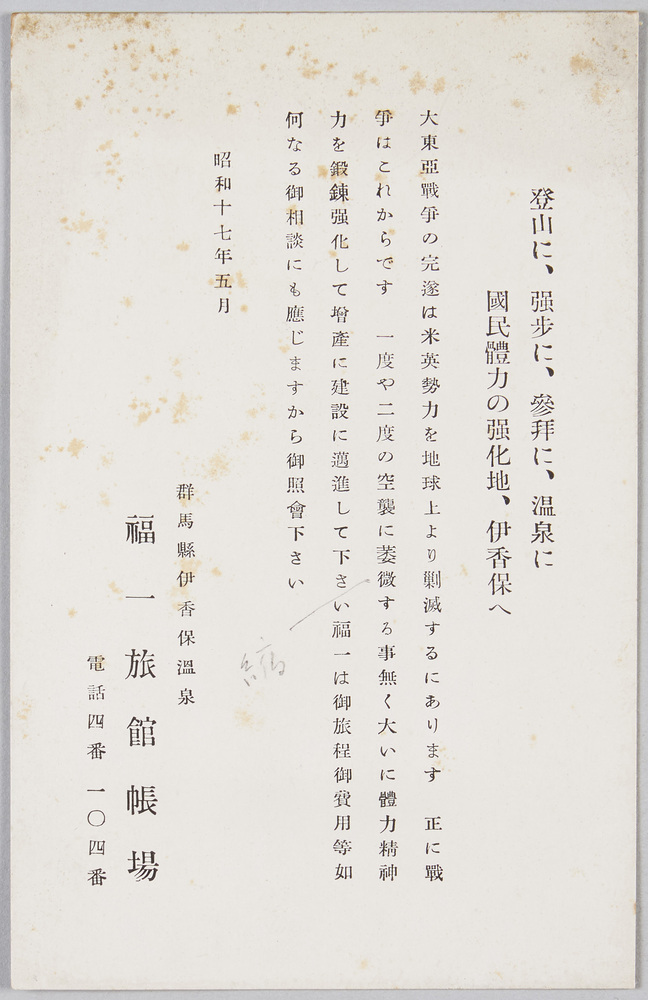 登山に、强步に、參拜に、溫泉に
國民體力の强化地、伊香保へ
大東亞戰爭の完遂は米英勢力を地球上より剿滅するにあります　正に戰
爭はこれからです　一度や二度の空襲に萎微する事無く大いに體力精神
力を鍛錬强化して增產に建設に邁進して下さい福一は御旅程御費用等如
何なる御相談にも應じますから御照會下さい
縮
昭和十七年五月
群馬縣伊香保溫泉
福一旅館帳場
電話四番　一〇四番